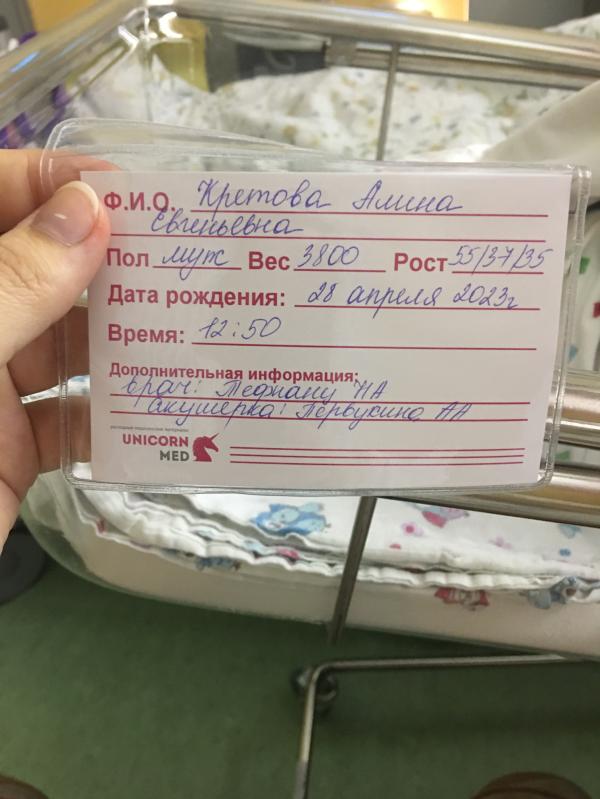 Ф.И.О. Кретова Алина
Евгеньевна
Пол муж Вес 3800 Рост 55/37/35
Дата рождения: 28 апреля 2023г
Время: 12:50
Дополнительная информация:
врач: НА
акушерка: Первусина АА
расходные медицинские материалы
UNICORN
MED